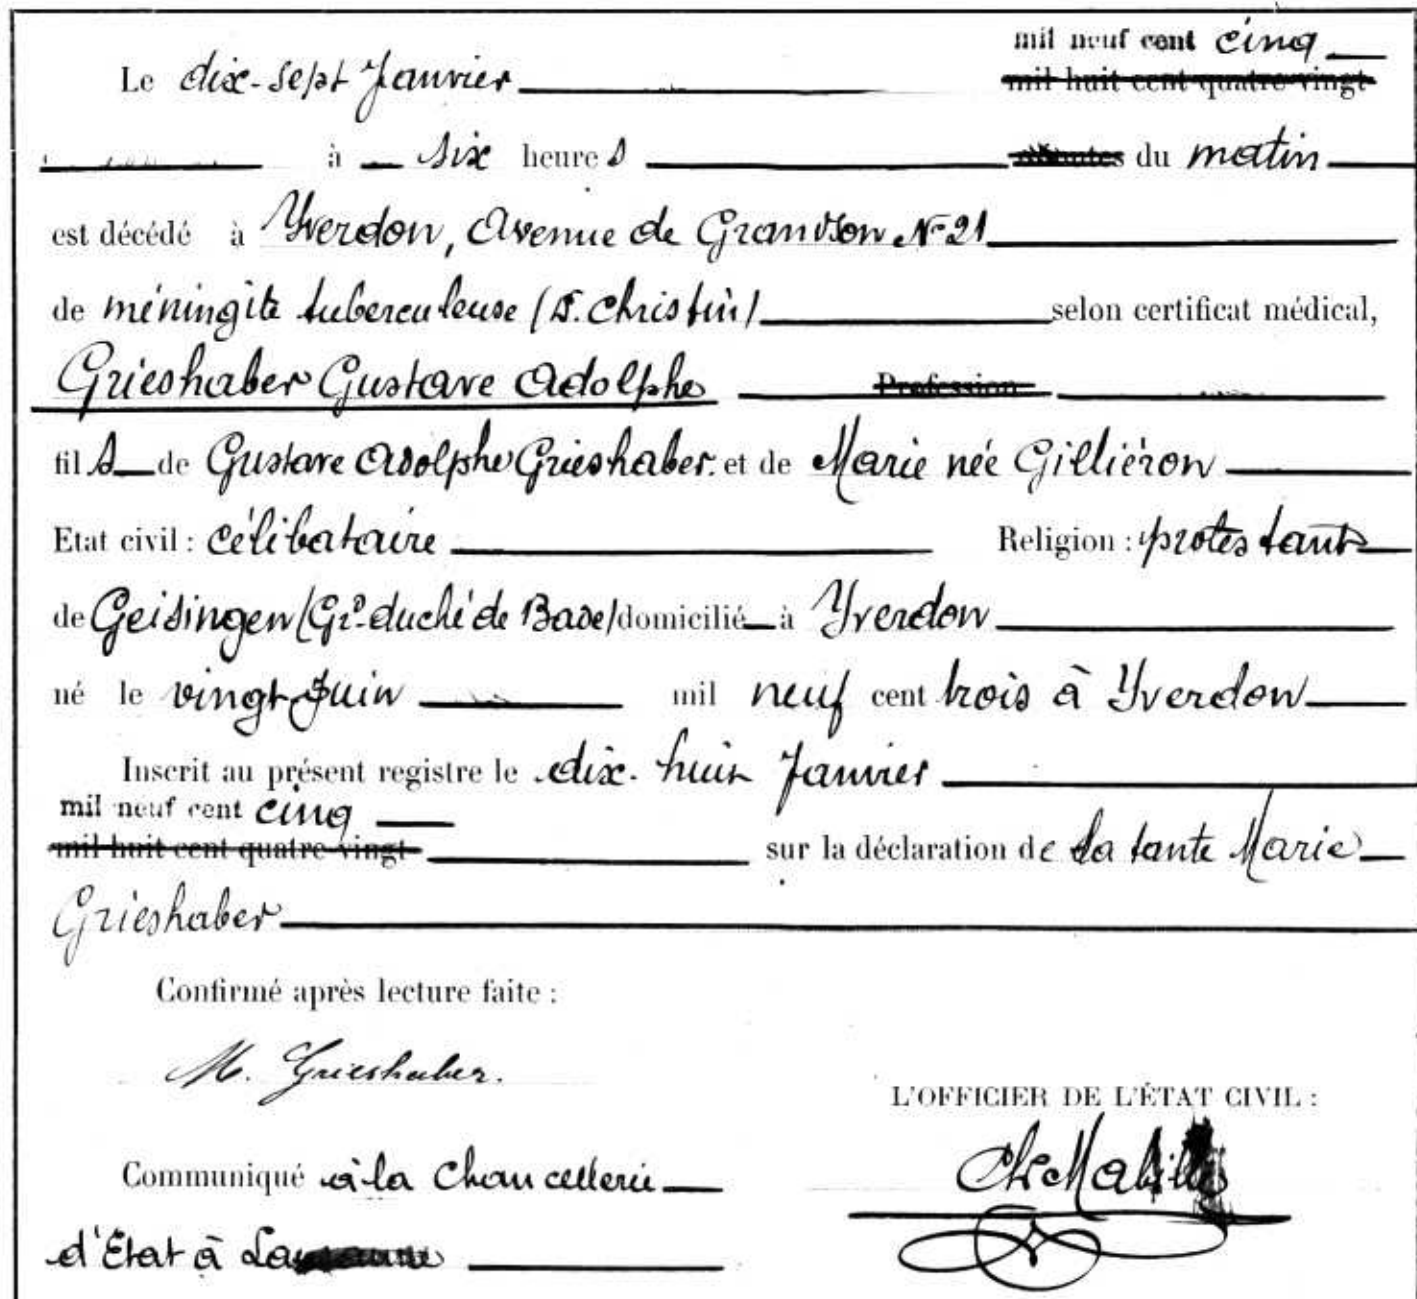 mil neuf cent cinq
Le dix-sept Janvier mil huit cent quatre-vingt
à six heures minutes du matin
est décédé à Yverdon, Avenue de Grandson No 21
de méningite tuberculeuse (D. Christin) selon certificat médical,
Grieshaber Gustave Adolphe Profession
fils de Gustave Adolphe Grieshaber. et de Marie née Gilliéron
Etat civil : célibataire Religion : protestant
de Geisingen (Gd. duché de Bade) domicilié à Yverdon
né le vingt Juin mil neuf cent trois à Yverdon
Inscrit au présent registre le dix-huit Janvier
mil neuf cent cinq
mil huit cent quatre-vingt sur la déclaration de la tante Marie
Grieshaber
Confirmé après lecture faite :
M. Grieshaber.
L'OFFICIER DE L'ÉTAT CIVIL :
Communiqué à la Chancellerie
d'État à Lausanne